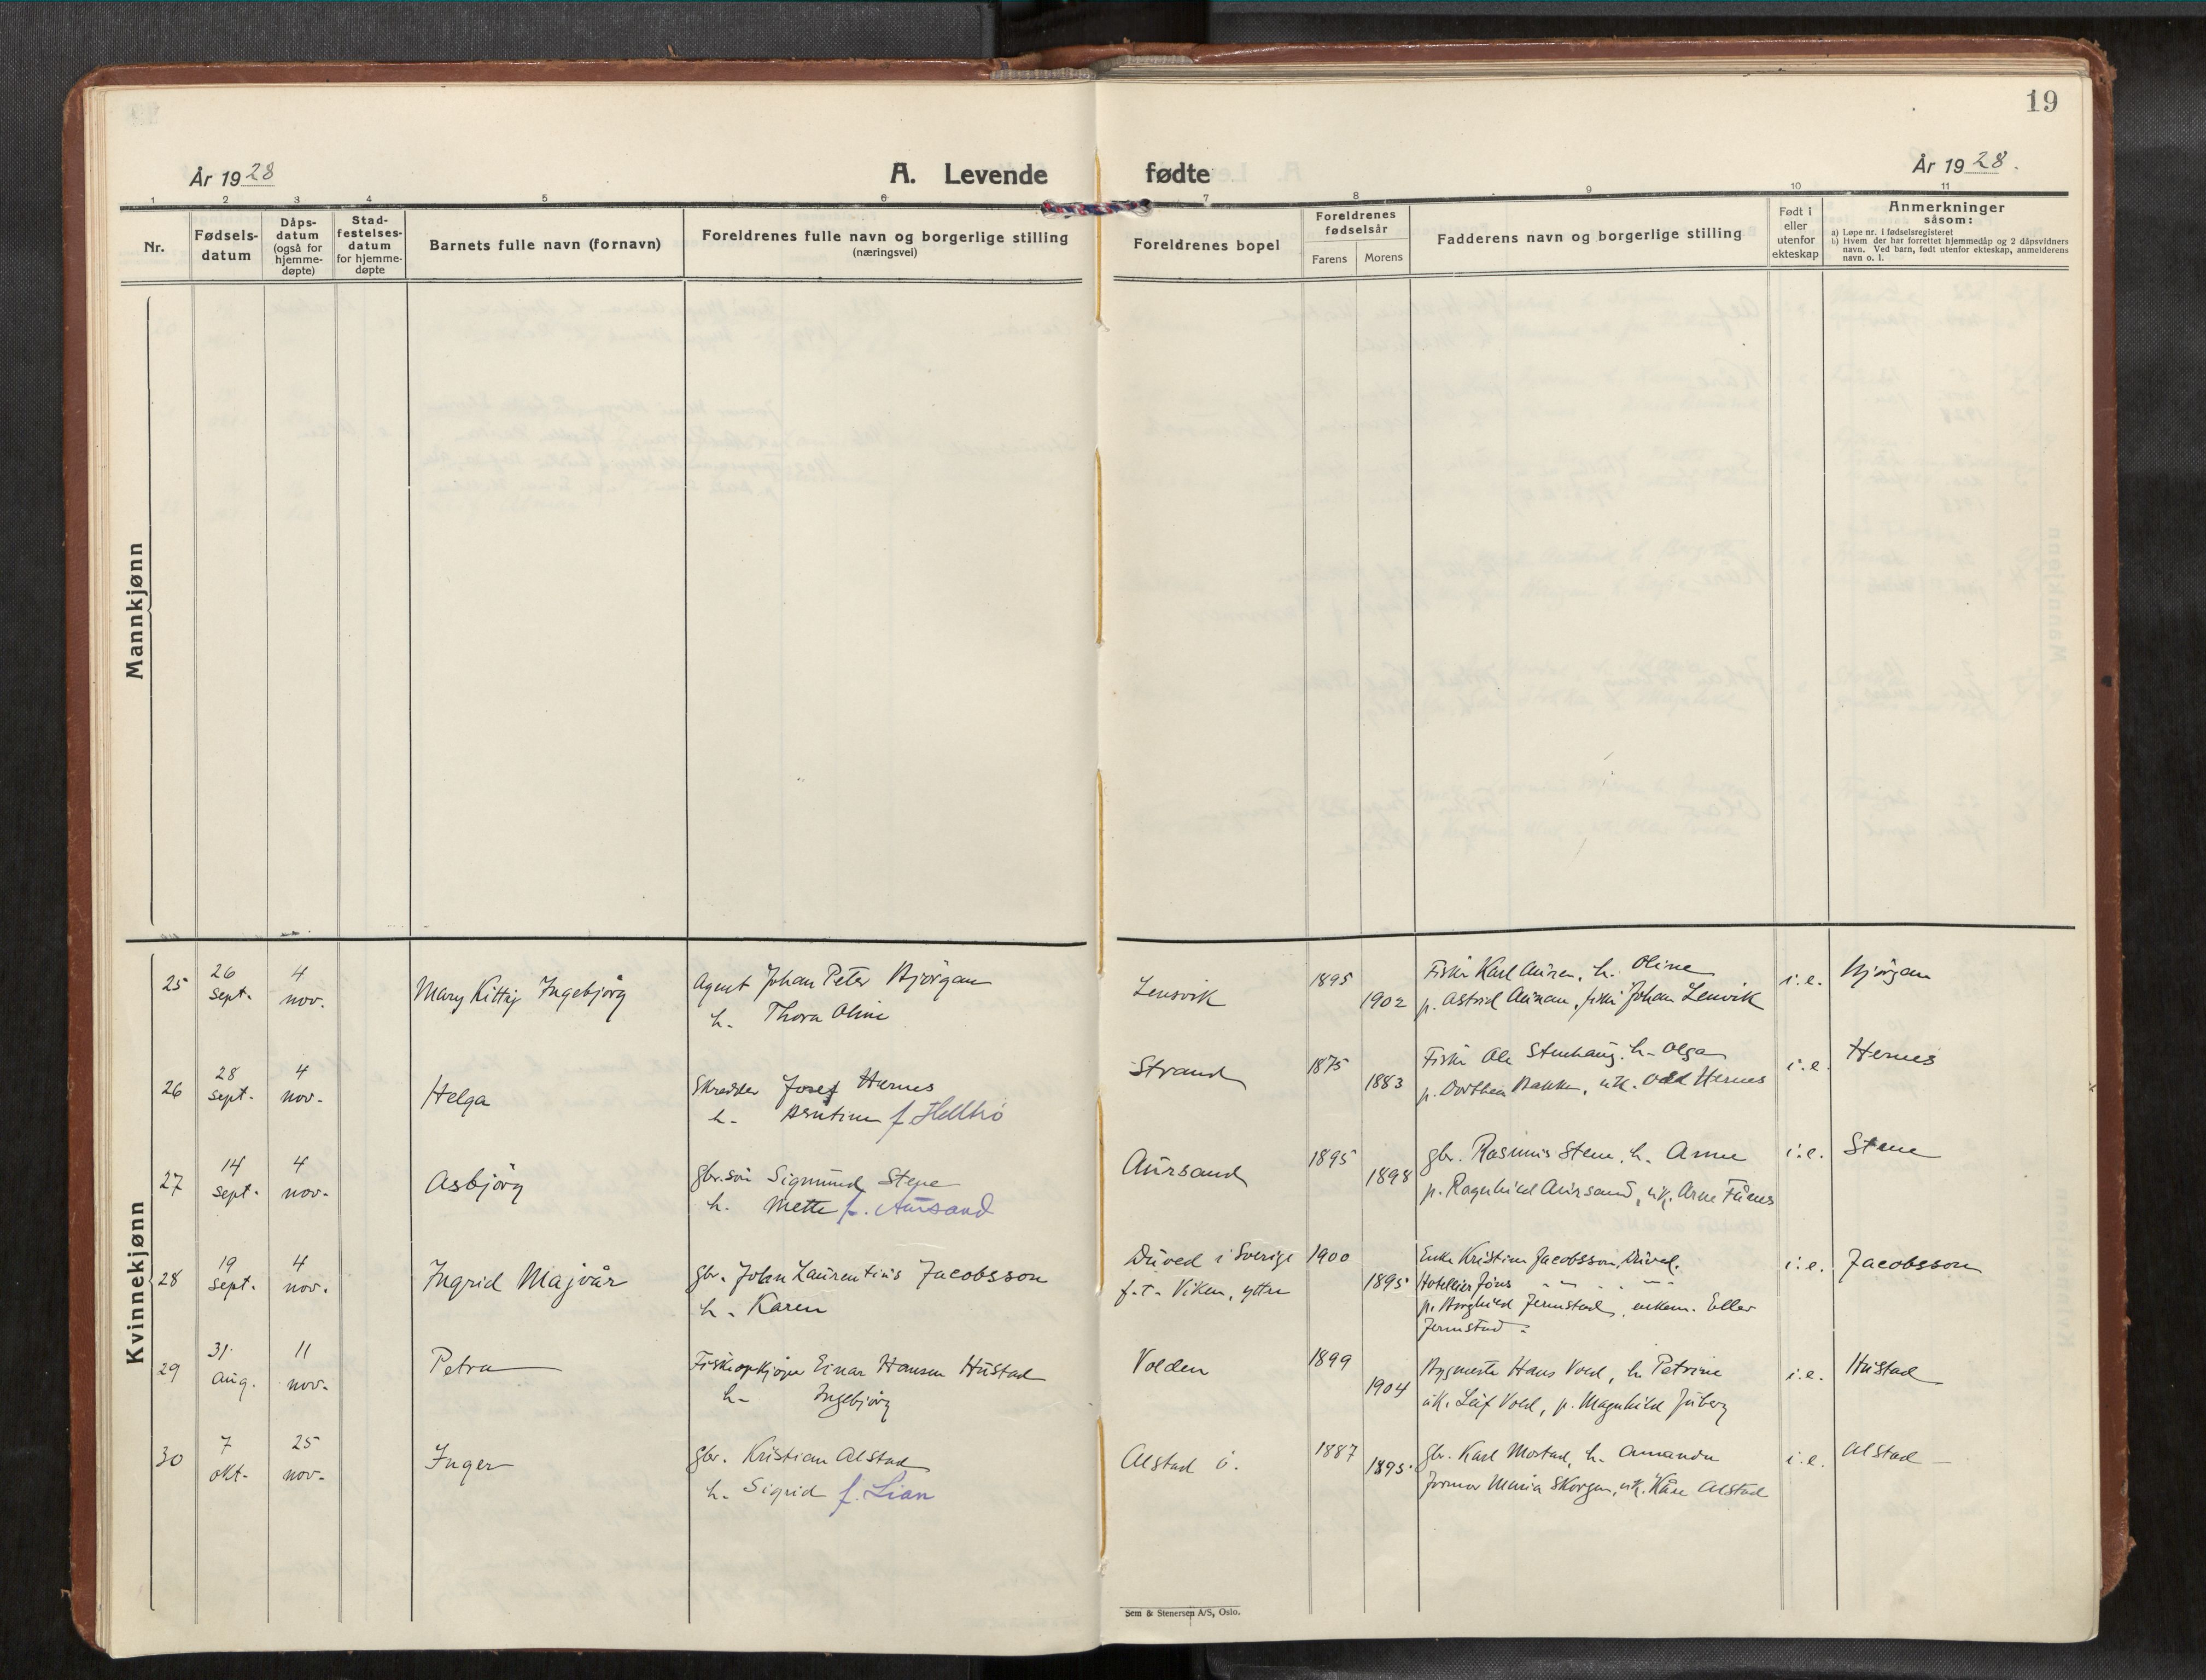 19
År 1928
A. Levende fødte
År 1928.
1 2 3 4 5 6 7 8 9 10 11
Nr.
Fødsels-
datum
Dåps-
datum
(også for
hjemme-
døpte)
Stad-
festelses-
datum
for hjemme-
døpte
Barnets fulle navn (fornavn)
Foreldrenes fulle navn og borgerlige stilling
(næringsvei)
Foreldrenes bopel
Foreldrenes
fødselsår
Farens Morens
Fadderens navn og borgerlige stilling
Født i
eller
utenfor
ekteskap
Anmerkninger
såsom:
a) Løpe nr. i fødselsregisteret
b) Hvem der har forrettet hjemmedåp og 2 dåpsvidners
navn. Ved barn, født utenfor ekteskap, anmelderens
navn o. l.
Mannkjønn
Kvinnekjønn
25
26
sept.
4
nov.
Mary Kitty Ingebjørg
Agent Johan Peter Bjørgan
h. Thora Oline
Lensvik
1895
1902
Fisker Karl Aunan, h. Oline
p. Astrid Aunan, fisker Johan Lenvik
i.e.
Bjørgan
26
28
sept.
4
nov.
Helga
Skredder Josef Hernes
h. Berntine f. Helltrø
Strand
1875
1883
Fisker Ole Stenhaug, h. Olga
p. Dorthea Bakken, u.k. Odd Hernes
i.e.
Hernes
27
14
sept.
4
nov.
Asbjørg
gbr.søn Sigmund Stene
h. Mette f. Aursand
Aursand
1895
1898
gbr. Rasmus Stene, h. Anne
p. Ragnhild Aursand, u.k. Arne
i.e.
Stene
28
19
sept.
4
nov.
Ingrid Majvår
gbr. John Laurentius Jacobsson
h. Karen
Duved i Sverige
f.t. Viken, ytre
1900
1895
Enke Kristine Jacobsson, Duved.
Hotellier Jöns
p. Borghild Jermstad, enkem. Eller
Jermstad
i.e.
Jacobsson
29
31
aug.
11
nov.
Petra
Fiskeopkjøper Einar Hansen Hustad
h. Ingebjørg
Volden
1899
1904
Bygmester Hans Vold, h. Petrine
u.k. Leif Vold, p. Magnhild Juberg
i.e.
Hustad
30
7
okt.
25
nov.
Inger
gbr. Kristian Alstad
h. Sigrid f. Lian
Alstad ö.
1887
1895
gbr. Karl Mostad, h. Amanda
Jormor Maria Skorgen, u.k. Kåre Alstad
i.e.
Alstad
Sem & Stenersen A/S, Oslo.